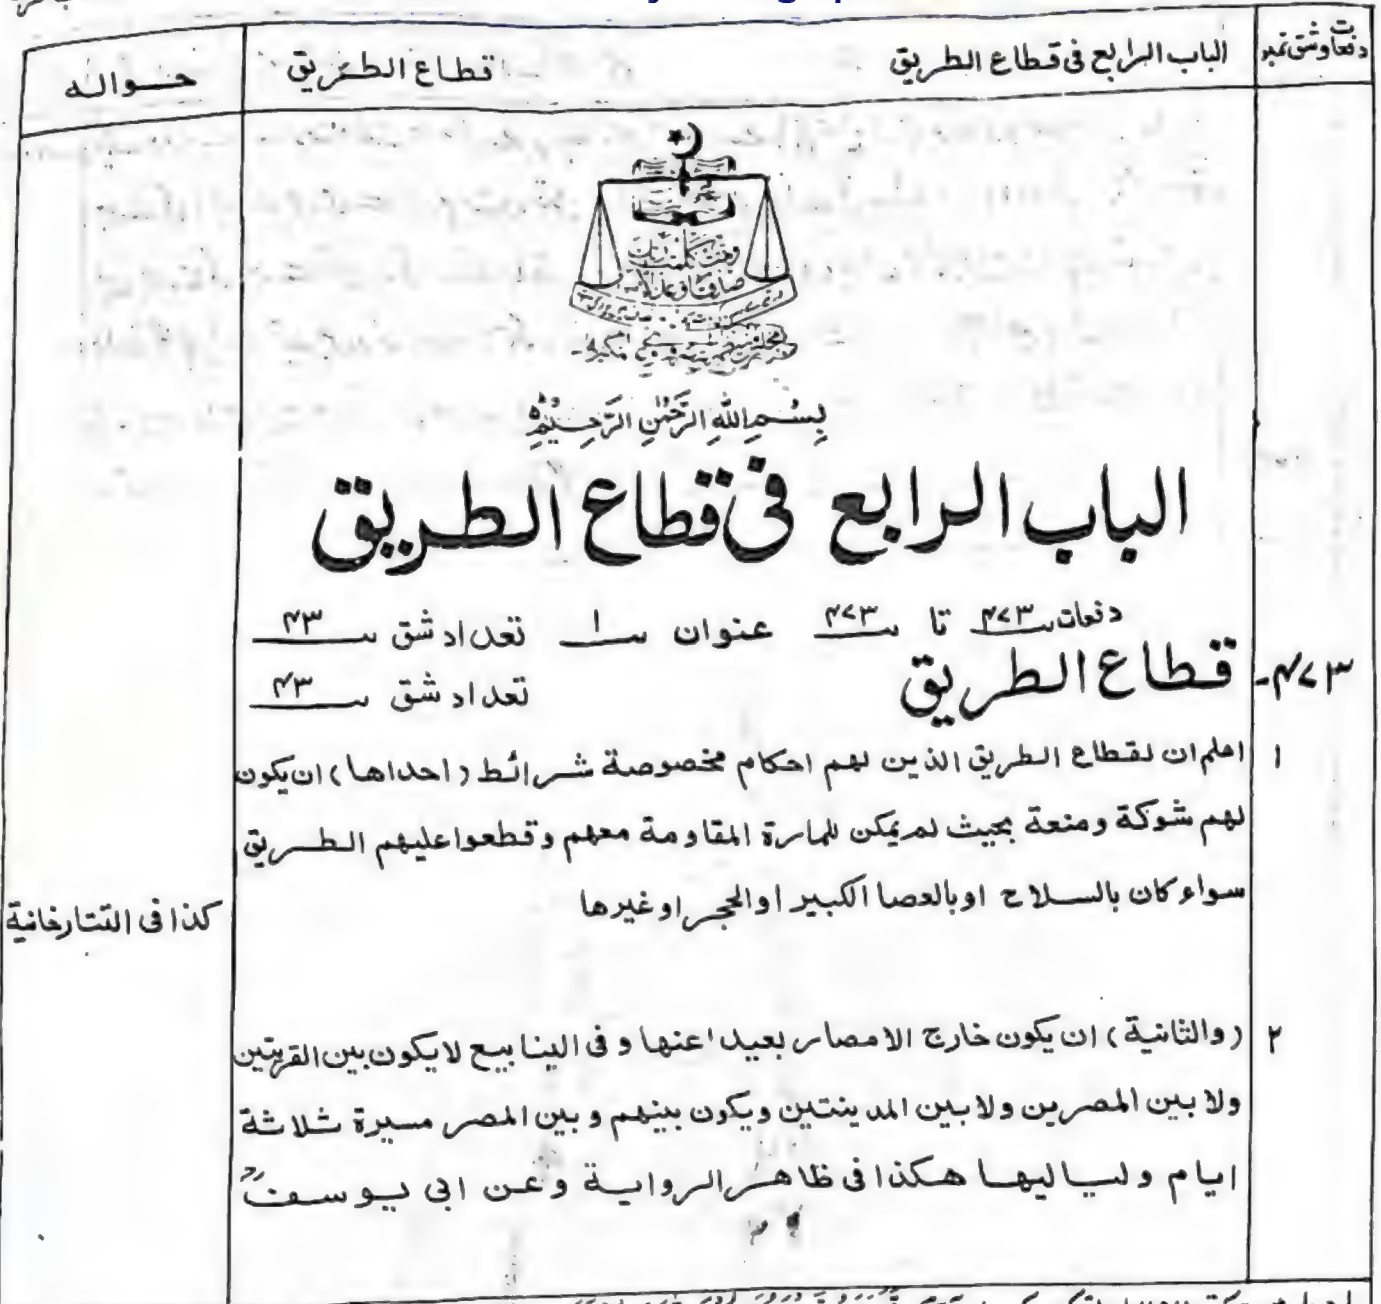 دفعات وشق نمبر
الباب الرابع فی قطاع الطریق
قطاع الطریق
حوالہ
وتمت کلمت ربک
صدقا وعدلا
بِسْمِ اللهِ الرَّحْمٰنِ الرَّحِيْمِ
الباب الرابع فی قطاع الطریق
دفعات ۴۷۳ تا ۴۷۳ عنوان ۱ تعداد شق ۴۳
۴۷۳- قطاع الطریق تعداد شق ۴۳
۱ اعلم ان لقطاع الطریق الذین لهم احکام مخصوصة شرائط (احداها) ان یکون
لهم شوکة ومنعة بحیث لم یمکن للمارة المقاومة معهم وقطعوا علیهم الطریق
سواء کان بالسلاح او بالعصا الکبیر او الحجر او غیرها
کذا فی التتارخانیة
۲ (والثانیة) ان یکون خارج الامصار بعیدا عنها وفی الینابیع لا یکون بین القریتین
ولا بین المصرین ولا بین المدینتین ویکون بینهم وبین المصر مسیرة ثلاثة
ایام ولیالیها هکذا فی ظاهر الروایة وعن ابی یوسف